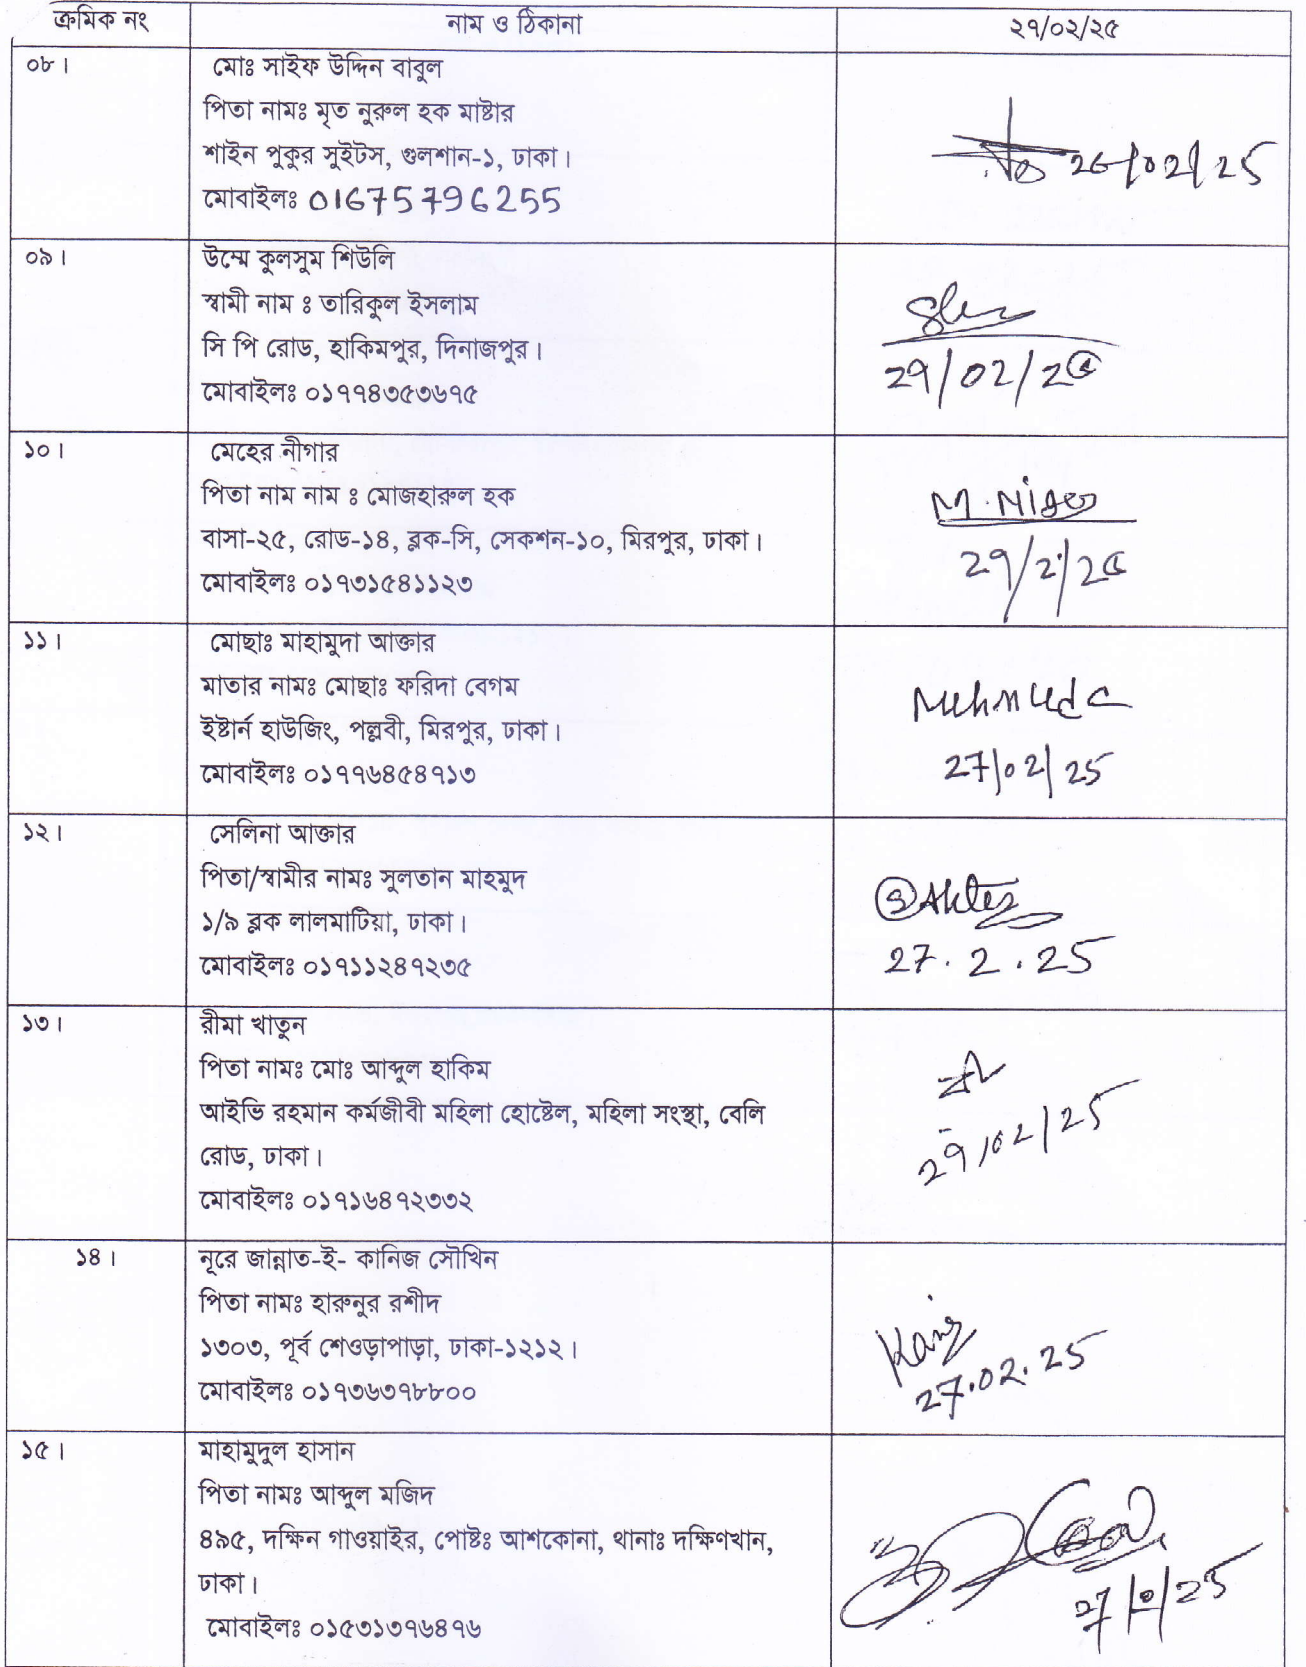 ক্রমিক নং
নাম ও ঠিকানা
২৭/০২/২৫
০৮।
মোঃ সাইফ উদ্দিন বাবুল
পিতা নামঃ মৃত নুরুল হক মাষ্টার
শাইন পুকুর সুইটস, গুলশান-১, ঢাকা।
মোবাইলঃ 01675796255
26/02/25
০৯।
উম্মে কুলসুম শিউলি
স্বামী নাম ঃ তারিকুল ইসলাম
সি পি রোড, হাকিমপুর, দিনাজপুর।
মোবাইলঃ ০১৭৭৪৩৫৩৬৭৫
২৭/০২/২৫
১০।
মেহের নীগার
পিতা নাম নাম ঃ মোজহারুল হক
বাসা-২৫, রোড-১৪, ব্লক-সি, সেকশন-১০, মিরপুর, ঢাকা।
মোবাইলঃ ০১৭৩১৫৪১১২৩
M. Nigar
২৭/২/২৫
১১।
মোছাঃ মাহামুদা আক্তার
মাতার নামঃ মোছাঃ ফরিদা বেগম
ইষ্টার্ন হাউজিং, পল্লবী, মিরপুর, ঢাকা।
মোবাইলঃ ০১৭৭৬৪৫৪৭১৩
27/02/25
১২।
সেলিনা আক্তার
পিতা/স্বামীর নামঃ সুলতান মাহমুদ
১/৯ ব্লক লালমাটিয়া, ঢাকা।
মোবাইলঃ ০১৭১১২৪৭২৩৫
SAkter
27.2.25
১৩।
রীমা খাতুন
পিতা নামঃ মোঃ আব্দুল হাকিম
আইভি রহমান কর্মজীবী মহিলা হোষ্টেল, মহিলা সংস্থা, বেলি
রোড, ঢাকা।
মোবাইলঃ ০১৭১৬৪৭২৩৩২
২৭/০২/25
১৪।
নূরে জান্নাত-ই- কানিজ সৌখিন
পিতা নামঃ হারুনুর রশীদ
১৩০৩, পূর্ব শেওড়াপাড়া, ঢাকা-১২১২।
মোবাইলঃ ০১৭৩৬৩৭৮৮০০
27.02.25
১৫।
মাহামুদুল হাসান
পিতা নামঃ আব্দুল মজিদ
৪৯৫, দক্ষিন গাওয়াইর, পোষ্টঃ আশকোনা, থানাঃ দক্ষিণখান,
ঢাকা।
মোবাইলঃ ০১৫৩১৩৭৬৪৭৬